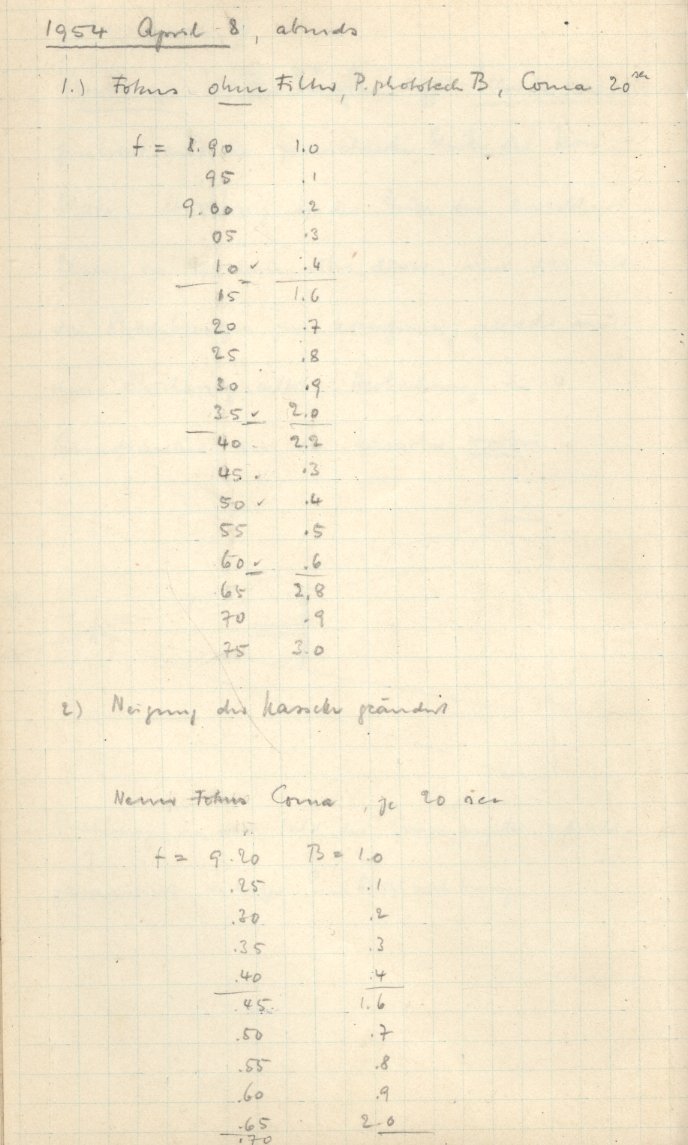 1954 April 8, abends
1.) Fokus ohne Filter, P. phototech B, Coma 20 sec
f = 8.90 1.0
95 .1
9.00 .2
05 .3
10 ✓ .4
15 1.6
20 .7
25 .8
30 .9
35 ✓ 2.0
40 2.2
45 .3
50 ✓ .4
55 .5
60 ✓ .6
65 2,8
70 .9
75 3.0
2) Neigung der Kassette geändert
Neuer Fokus Coma, je 20 sec
f = 9.20 B = 1.0
.25 .1
.30 .2
.35 .3
.40 .4
.45 1.6
.50 .7
.55 .8
.60 .9
.65 2.0
.70